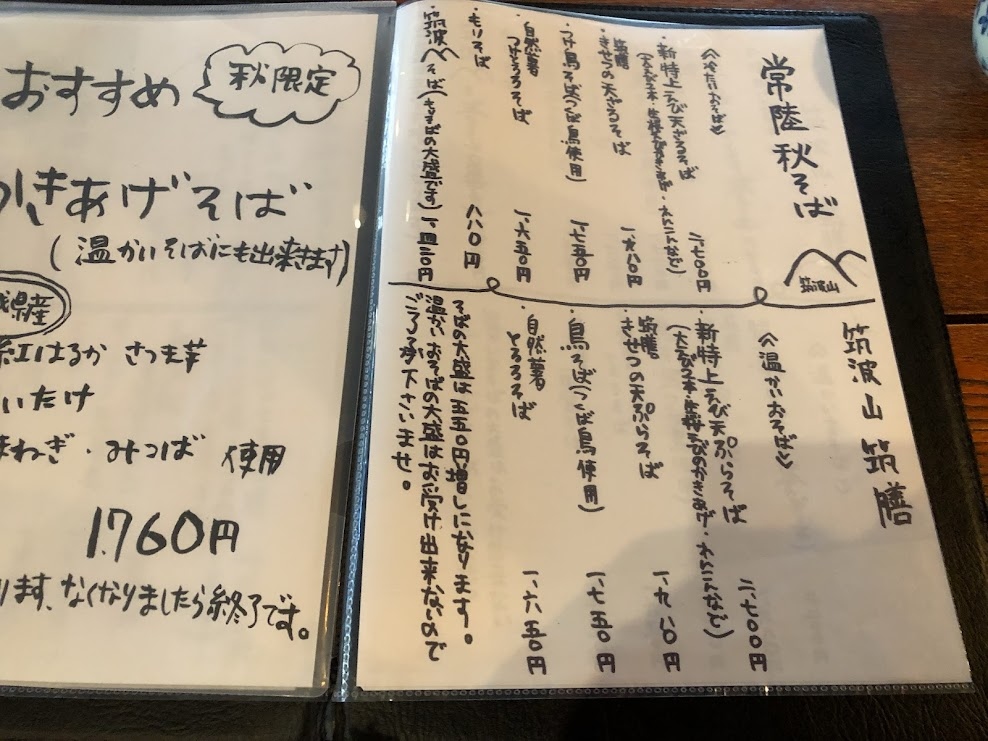 常陸秋そば
筑波山
筑波山 筑膳
《冷たいおそば》
・新特上えび天ざるそば
二、七〇〇円
筑膳
きせつの天ざるそば
一、九八〇円
・つけ鳥そば(つくば鳥使用)
一、七五〇円
・自然薯
つけとろろそば
一、六五〇円
・もりそば
八八〇円
・筑波山そば(もりそばの大盛です)一、四三〇円
《温かいおそば》
・新特上えび天ぷらそば
(大えび二本・生桜えびのかきあげ・れんこんなど)
二、七〇〇円
・筑膳
きせつの天ぷらそば
一、九八〇円
・鳥そば(つくば鳥使用)
一、七五〇円
・自然薯
とろろそば
一、六五〇円
そばの大盛は五五〇円増しになります。
温かいおそばの大盛はお受け出来ないので
ごろ了承下さいませ。
おすすめ
秋限定
かきあげそば
(温かいそばにも出来ます)
県産
紅はるか さつま芋
いたけ
ねぎ・みつば 使用
1.760円
ります、なくなりましたら終了です。